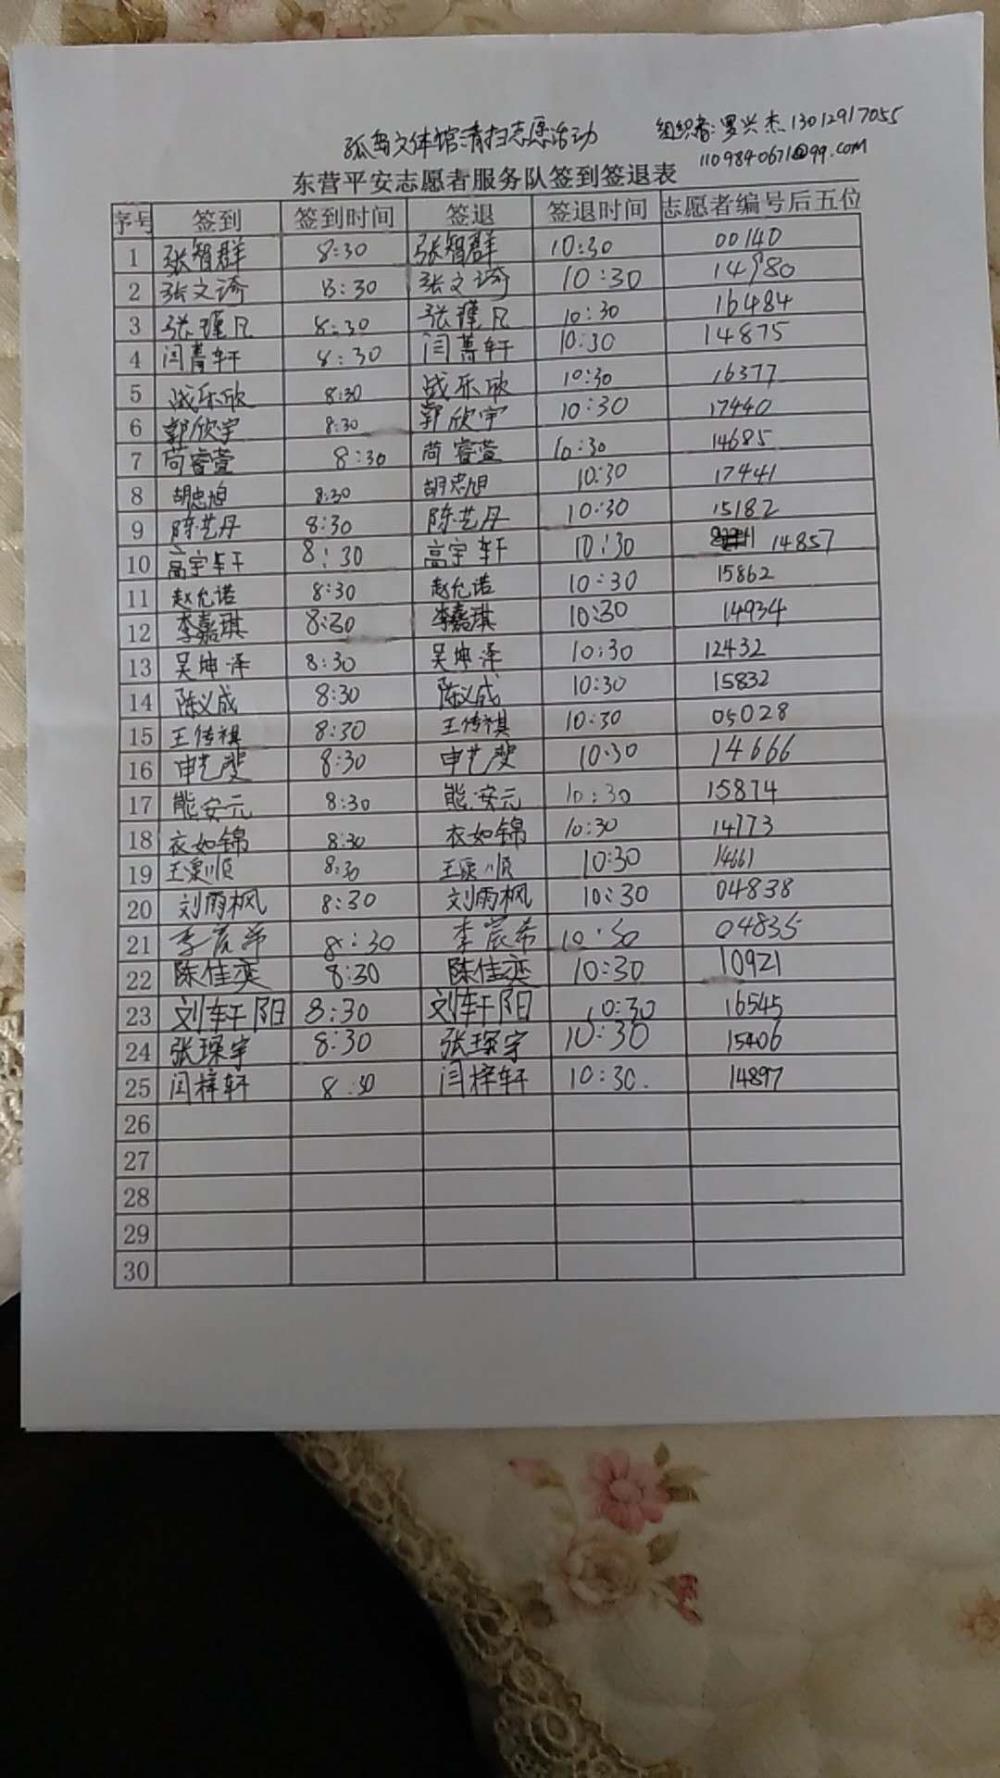 孤岛文体馆清扫志愿活动 组织者:罗兴杰 13012917055
1109840671@qq.com
东营平安志愿者服务队签到签退表
序号 签到 签到时间 签退 签退时间 志愿者编号后五位
1 张智群 8:30 张智群 10:30 00140
2 张文漪 8:30 张文漪 10:30 14980
3 张瑾凡 8:30 张瑾凡 10:30 16484
4 闫菁轩 8:30 闫菁轩 10:30 14875
5 战乐欣 8:30 战乐欣 10:30 16377
6 郭欣宇 8:30 郭欣宇 10:30 17440
7 苘睿萱 8:30 苘睿萱 10:30 14685
8 胡忠旭 8:30 胡忠旭 10:30 17441
9 陈艺丹 8:30 陈艺丹 10:30 15182
10 高宇轩 8:30 高宇轩 10:30 14857
11 赵允诺 8:30 赵允诺 10:30 15862
12 李嘉琪 8:30 李嘉琪 10:30 14934
13 吴坤泽 8:30 吴坤泽 10:30 12432
14 陈义成 8:30 陈义成 10:30 15832
15 王传祺 8:30 王传祺 10:30 05028
16 申艺斐 8:30 申艺斐 10:30 14666
17 熊安元 8:30 熊安元 10:30 15874
18 衣如锦 8:30 衣如锦 10:30 14773
19 8:30 10:30 14661
20 刘雨枫 8:30 刘雨枫 10:30 04838
21 李宸希 8:30 李宸希 10:30 04835
22 陈佳奕 8:30 陈佳奕 10:30 10921
23 刘轩阳 8:30 刘轩阳 10:30 16545
24 张琛宇 8:30 张琛宇 10:30 15406
25 闫梓轩 8:30 闫梓轩 10:30. 14897
26
27
28
29
30